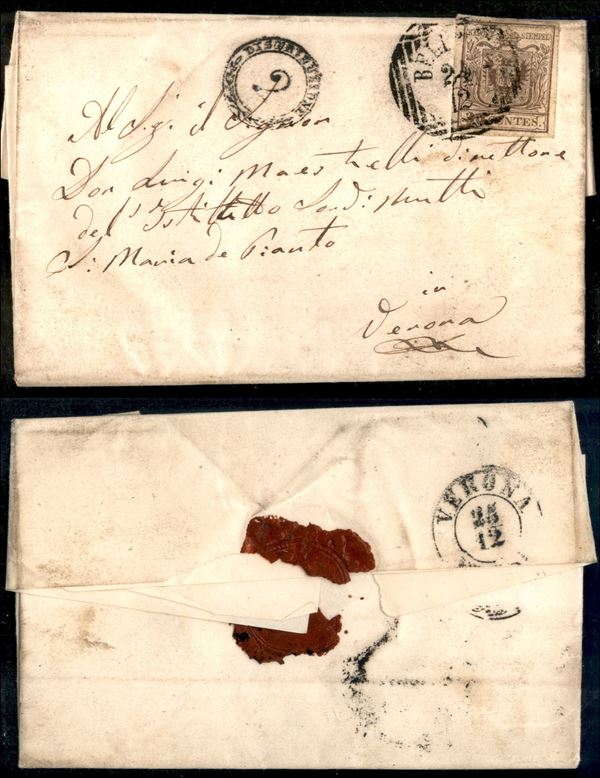 DISTRIBUZIONE
2
BEL
STEMPEL
CENTES.
Al Sig. il Signor
Don Luigi Maestrelli direttore
del Istituto Sordi Mutti
S. Maria de Pianto
in
Verona
VERONA
25
12